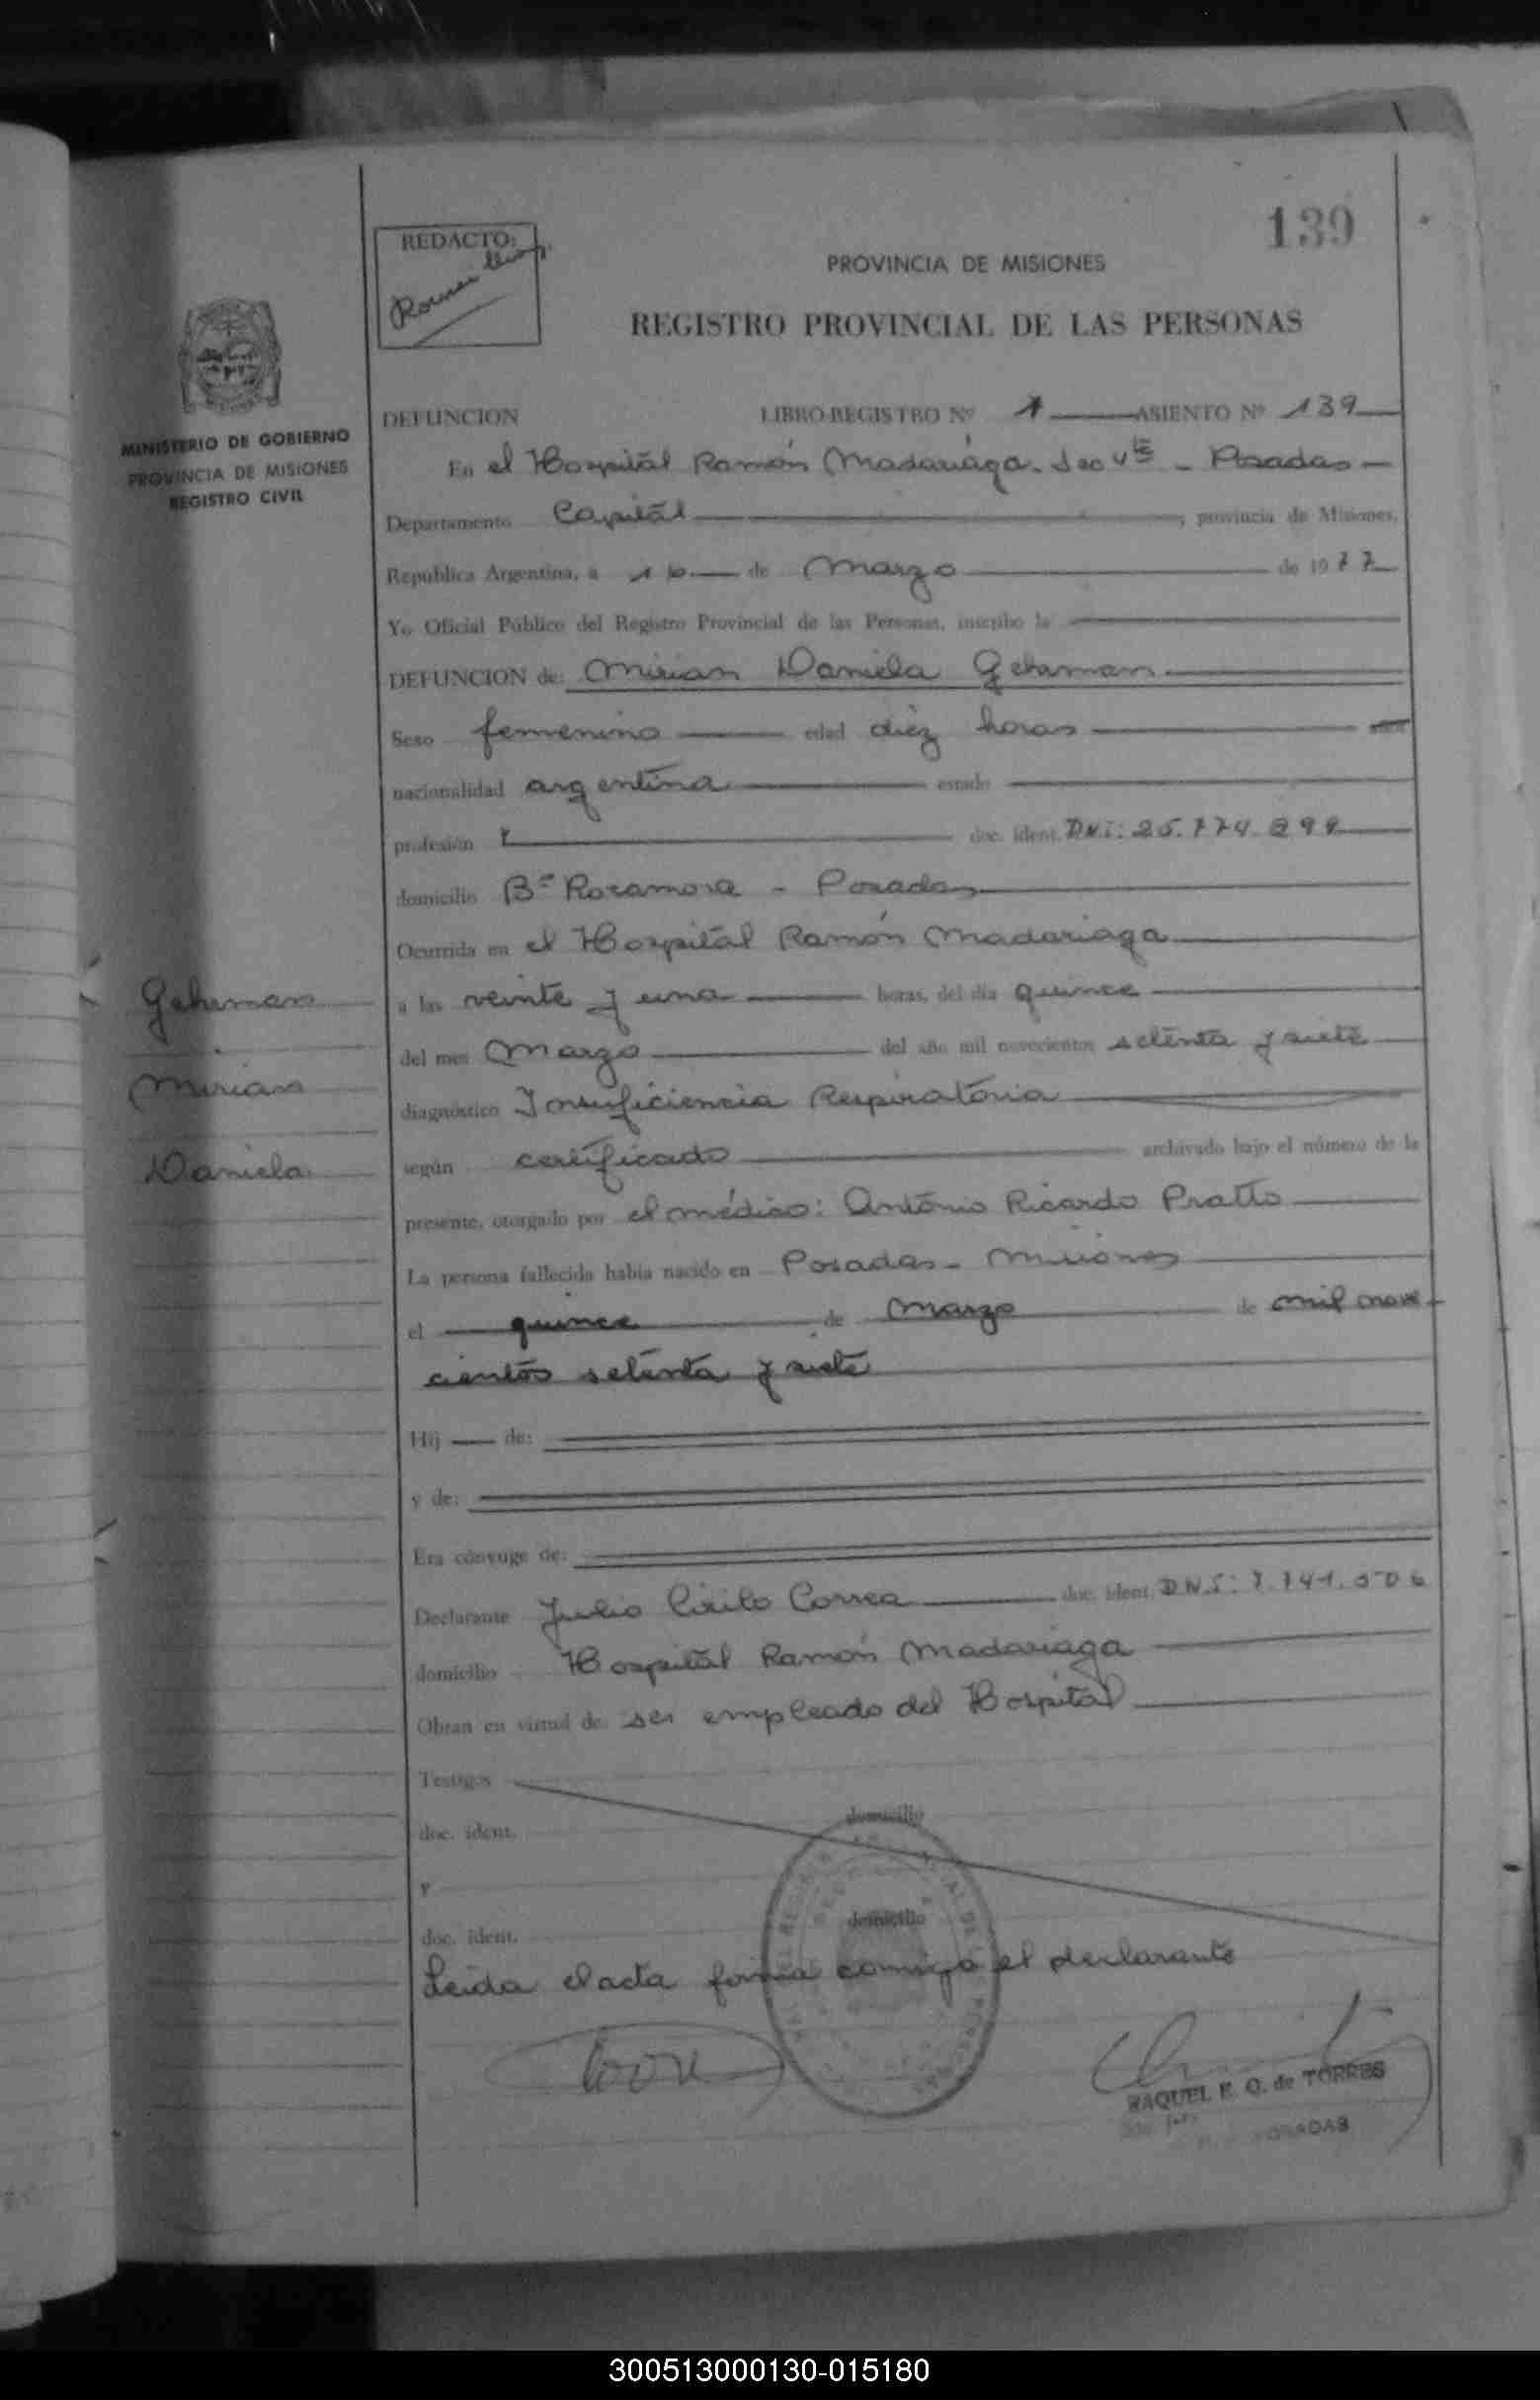 139
REDACTO:
PROVINCIA DE MISIONES
REGISTRO PROVINCIAL DE LAS PERSONAS
MINISTERIO DE GOBIERNO
PROVINCIA DE MISIONES
REGISTRO CIVIL
DEFUNCION LIBRO-REGISTRO Nº 1 ASIENTO Nº 139
En el Hospital Ramón Madariaga - Posadas
Departamento Capital, provincia de Misiones,
República Argentina, a de Marzo de 1977
Yo Oficial Público del Registro Provincial de las Personas, inscribo la
DEFUNCION de: Mirian Daniela Gehrman
Sexo femenino edad diez horas
nacionalidad argentina estado
profesión doc. ident. DNI:
domicilio Bº Rocamora - Posadas
Ocurrida en el Hospital Ramón Madariaga
a las veinte y una horas, del día quince
del mes Marzo del año mil novecientos setenta y siete
diagnóstico Insuficiencia Respiratoria
según certificado archivado bajo el número de la
presente, otorgado por el médico: Antonio Ricardo Pratto
La persona fallecida había nacido en Posadas - Misiones
el quince de Marzo de mil nove-
cientos setenta y siete
Hij de:
y de:
Era cónyuge de:
Declarante Julio Cirilo Correa doc. ident. DNI:
domicilio Hospital Ramón Madariaga
Obran en virtud de ser empleado del Hospital
Testigos
domicilio
doc. ident.
y
domicilio
doc. ident.
Leida el acta firma conmigo el declarante
RAQUEL E. Q. de TORRES
POSADAS
Gehrman
Mirian
Daniela
300513000130-015180